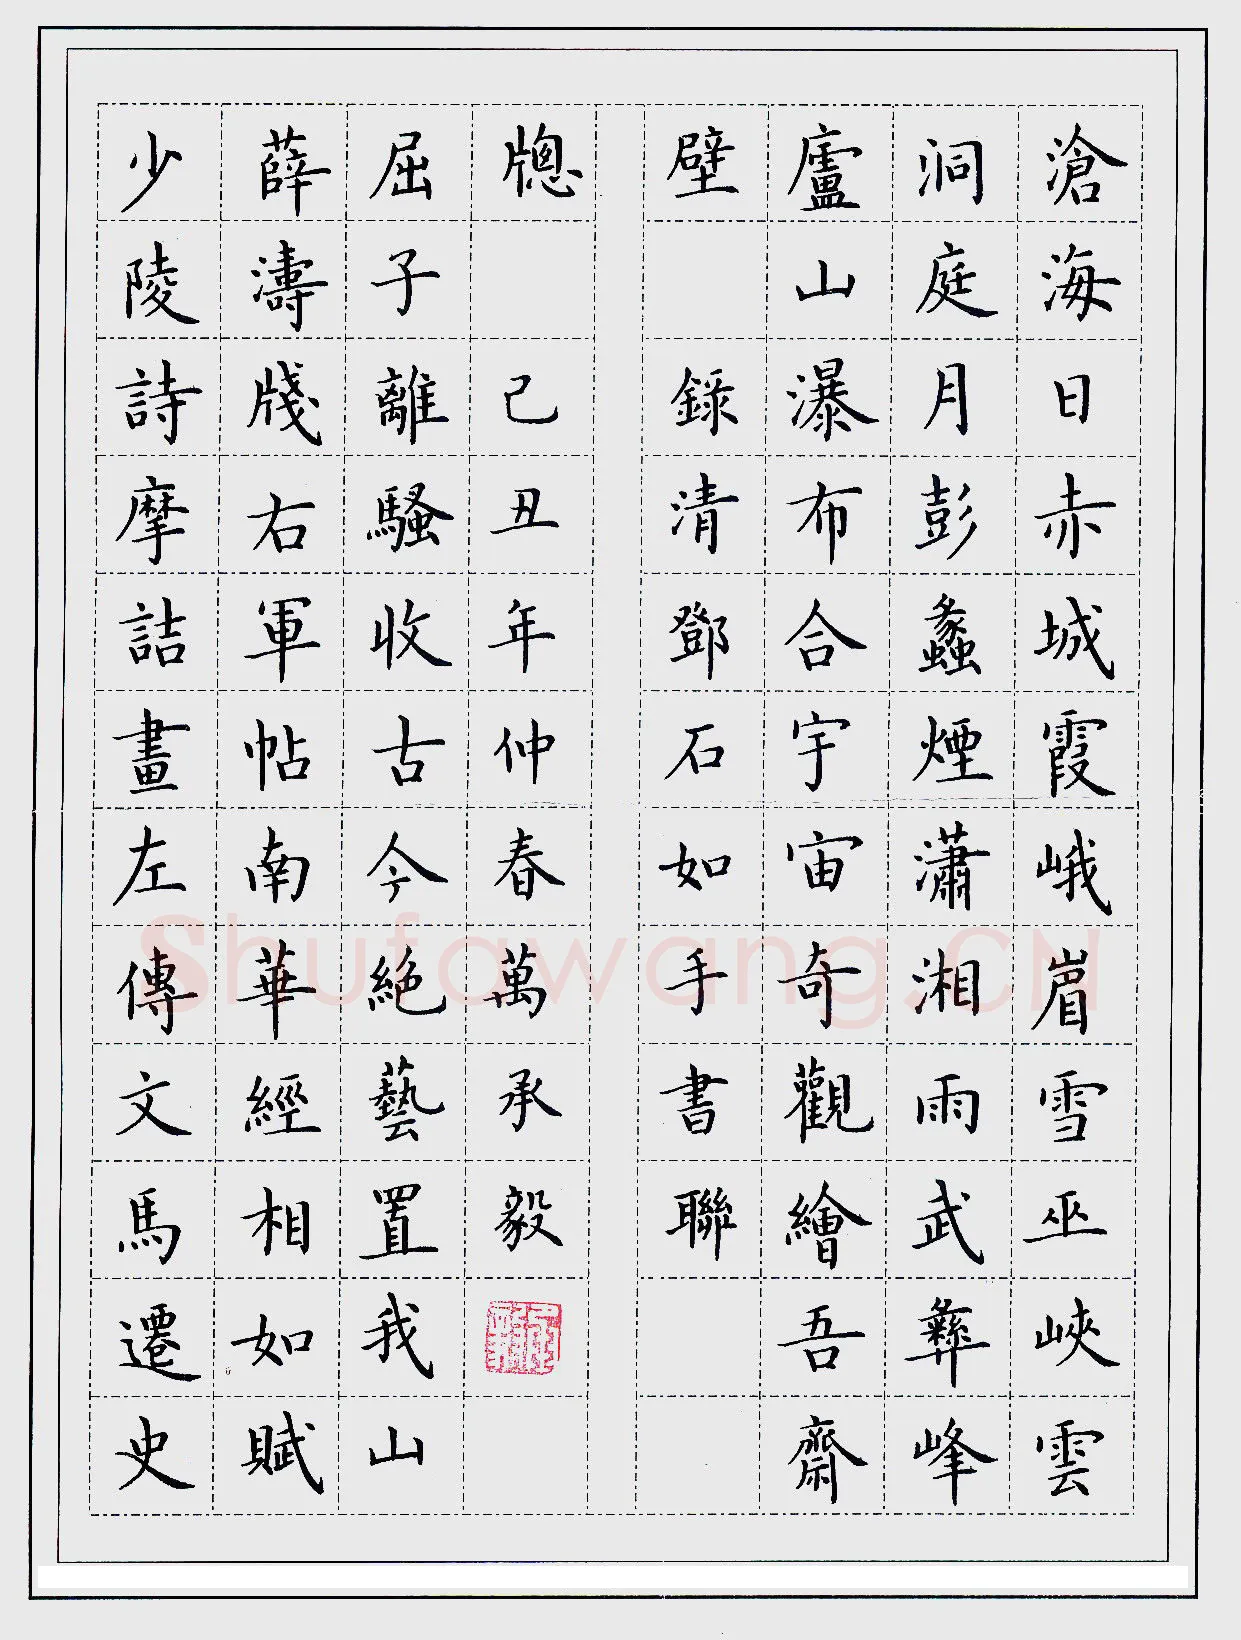 滄海日赤城霞峨嵋雪巫峽雲
洞庭月彭蠡煙瀟湘雨武彝峰
廬山瀑布合宇宙奇觀繪吾齋
壁 錄清鄧石如手書聯
少陵詩摩詰畫左傳文馬遷史
薛濤牋右軍帖南華經相如賦
屈子離騷收古今絕藝置我山
牕 己丑年仲春萬承毅
Shufawang.CN